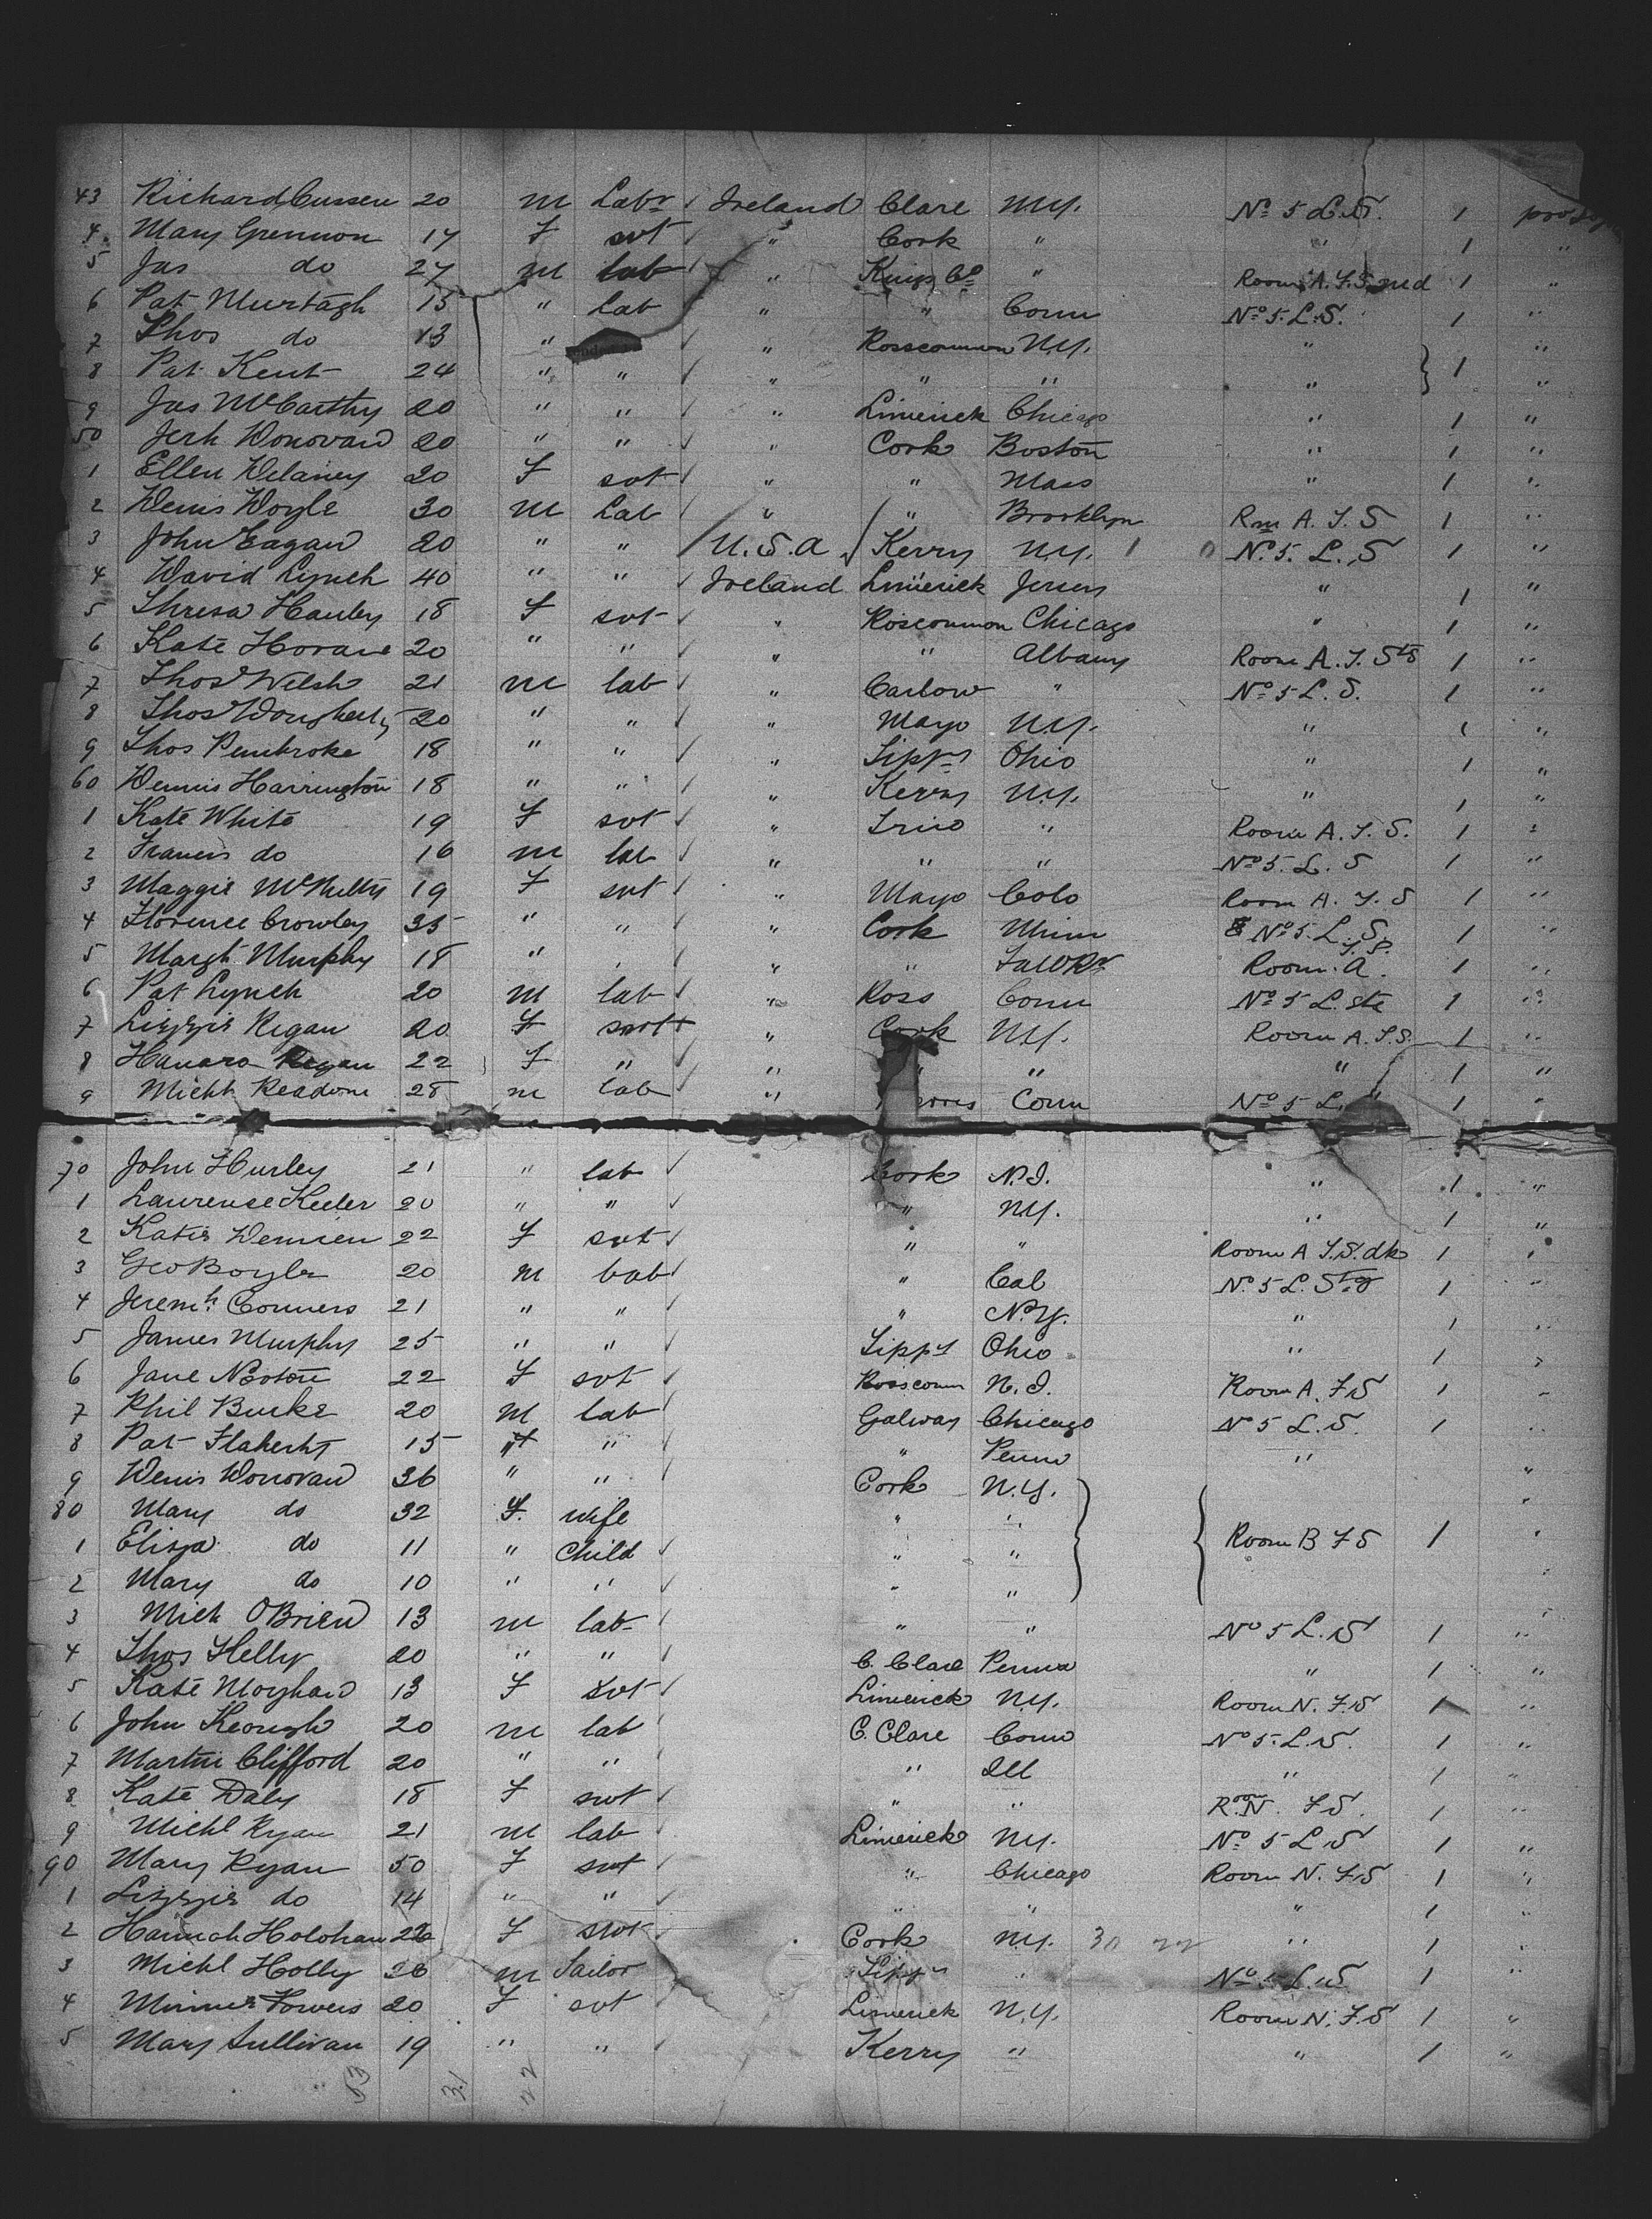 43 Richard Cussen 20 m Labr ✓ Ireland Clare N.Y. No 5 L.S. 1
4 Mary Grennon 17 F svt ✓ " Cork " " 1 "
5 Jas do 27 m lab ✓ " Kings Co " Room A. F.S. 1 "
6 Pat Murtagh 15 " lab ✓ " " Conn No 5. L.S. 1 "
7 Thos do 13 " ✓ " Rosscommon N.Y. " "
8 Pat Kent 24 " " ✓ " " " " } 1 "
9 Jas McCarthy 20 " " ✓ " Limerick Chicago " 1 "
50 Jerh Donovan 20 " " ✓ " Cork Boston " 1 "
1 Ellen Delaney 20 F svt ✓ " " Mass " 1 "
2 Denis Doyle 30 m Lab ✓ " " Brooklyn Rm A. F. S 1 "
3 John Eagan 20 " " ✓ U.S.a Kerry N.Y. 1 0 No. 5. L. S 1 "
4 David Lynch 40 " " ✓ Ireland Limerick Jersey " 1 "
5 Thresa Hanley 18 F svt ✓ " Roscommon Chicago " 1 "
6 Kate Horan 20 " " ✓ " " Albany Room A. F. Stg 1 "
7 Thos Welsh 21 m lab ✓ " Carlow " No 5 L. S. 1 "
8 Thos Dougherty 20 " " ✓ " Mayo N.Y. " 1 "
9 Thos Pembroke 18 " " ✓ " Tippy Ohio " 1 "
60 Dennis Harrington 18 " " ✓ " Kerry N.Y. " 1 "
1 Kate White 19 F svt ✓ " " Room A. F. S. 1 "
2 Francis do 16 m lab ✓ " " " No 5. L. S 1 "
3 Maggie McNulty 19 F svt ✓ " Mayo Colo Room A. F. S 1 "
4 Florence Crowley 35 " " ✓ " Cork Minn No 5. L. S. 1 "
5 Margt Murphy 18 " " ✓ " " Room A. F.S. 1 "
6 Pat Lynch 20 m lab ✓ " Ross Conn No 5 L. Stg 1 "
7 Lizzie Regan 20 F svt ✓ " Cork N.Y. Room A. F.S. 1 "
8 Hanara Regan 22 F " ✓ " " " " 1 "
9 Michl Readone 28 m lab ✓ " Conn No 5 L. " 1 "
70 John Hurley 21 " lab ✓ Cork N.J. " 1 "
1 Laurense Keeler 20 " " ✓ " N.Y. " 1 "
2 Katie 22 F svt ✓ " " Room A F.S. dk 1 "
3 Geo Boyle 20 m Lab ✓ " Cal No. 5 L. Stg 1 "
4 Jeremh Conners 21 " " ✓ " N.Y. " 1 "
5 James Murphy 25 " " ✓ Tippy Ohio " 1 "
6 Jane Naoton 22 F svt ✓ Rosscomn N. J. Room A. F.S 1 "
7 Phil Burke 20 m lab ✓ Galway Chicago No 5 L. S. 1 "
8 Pat Flaherty 15 " " ✓ " Penna "
9 Denis Donovan 36 " " ✓ Cork N.Y. "
80 Mary do 32 F. wife " " "
1 Eliza do 11 " Child ✓ " " } { Room B F S 1 "
2 Mary do 10 " " ✓ " " "
3 Mich OBrien 13 m lab ✓ " " No 5 L. S 1 "
4 Thos Kelly 20 " " ✓ C. Clare Penna " 1 "
5 Kate Moyhan 13 F Svt ✓ Limerick N.Y. Room N. F.S 1 "
6 John Keough 20 m lab ✓ C. Clare Conn No 5. L. S. 1 "
7 Martin Clifford 20 " " ✓ " Ill " 1 "
8 Kate Daly 18 F svt ✓ " " Room N. F S. 1 "
9 Michl Ryan 21 m lab ✓ Limerick N.Y. No 5 L S 1 "
90 Mary Ryan 50 F svt ✓ " Chicago Room N. F.S 1 "
1 Lizzie do 14 " " ✓ " " " 1 "
2 Hannah Holohan 22 F svt ✓ Cork N.Y. 30 22 " 1 "
3 Michl Holly 26 m Sailor Tippy " No L. S 1 "
4 Minnie Powers 20 F svt ✓ Limerick N.Y. Room N. F.S 1 "
5 Mary Sullivan 19 " " ✓ Kerry " " 1 "
53 31 22